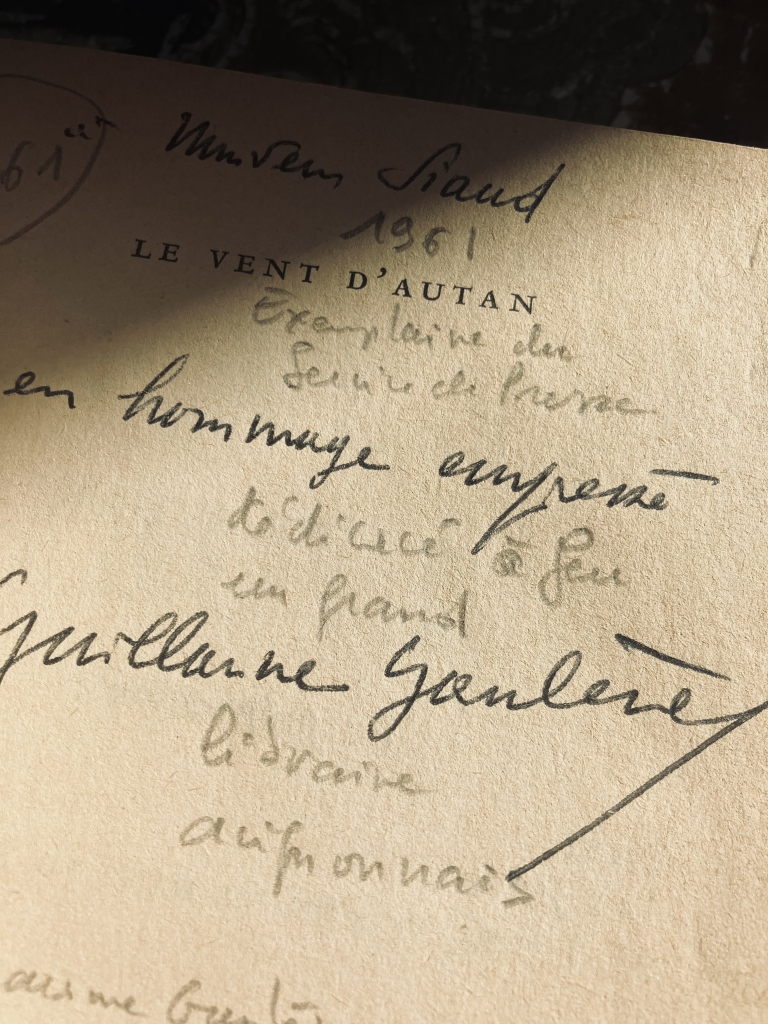 61"
Siaud
1961
LE VENT D'AUTAN
Exemplaire du
Service de Presse
en hommage empressé
dédicacé à feu
un grand
Guillaume Gaulène
libraire
avignonnais